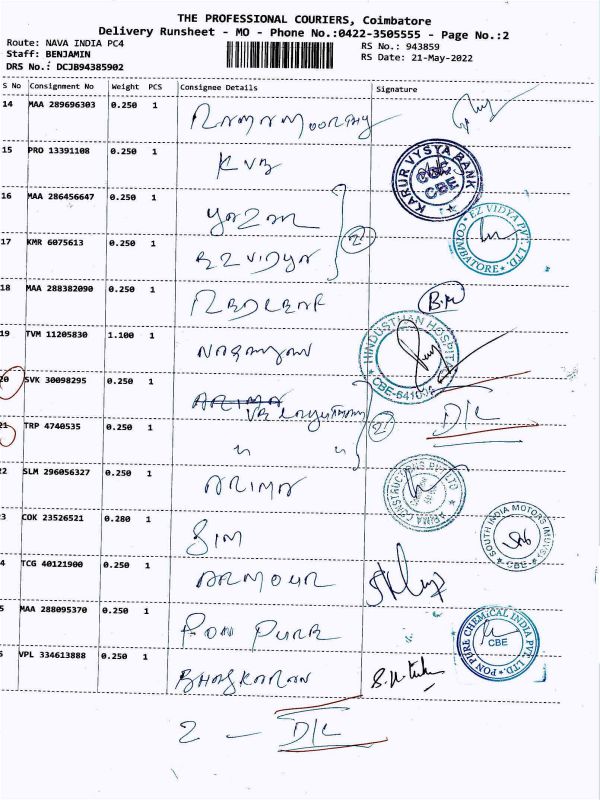 THE PROFESSIONAL COURIERS, Coimbatore
Delivery Runsheet - MO - Phone No.:0422-3505555 - Page No.:2
Route: NAVA INDIA PC4
Staff: BENJAMIN
DRS No.: DCJB94385902
RS No.: 943859
RS Date: 21-May-2022
S No Consignment No Weight PCS Consignee Details Signature
14 MAA 289696303 0.250 1 RAMAMOORTHY
15 PRO 13391108 0.250 1 KVB
KARUR VYSYA BANK CBE
16 MAA 286456647 0.250 1
17 KMR 6075613 0.250 1 EZVIDYA
EZ VIDYA PVT. LTD. COIMBATORE
18 MAA 288382090 0.250 1 B.M
19 TVM 11205830 1.100 1 NARAYANAN
HINDUSTHAN HOSPITAL
20 SVK 30098295 0.250 1 ARIMA
D/L
21 TRP 4740535 0.250 1 " "
22 SLM 296056327 0.250 1 ARIMA
3 COK 23526521 0.280 1 SIM
SOUTH INDIA MOTORS CBE
4 TCG 40121900 0.250 1 ARMOUR
5 MAA 288095370 0.250 1 PON PURE
PON PURE CHEMICAL INDIA PVT. LTD. CBE
VPL 334613888 0.250 1 BHASKARAN
2 - D/L